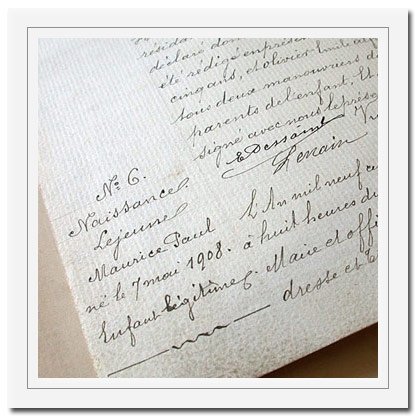 résidant
déclaré
été rédigé en présence
cinq ans, et olivier Emile
tous deux manouvriers
parents de l'enfant. Et
signé avec nous le présent
E Dessaint
Lenain
No 6.
Naissance
Lejeune
Maurice Paul
né le 7 mai 1908.
Enfant légitime
L'An mil neuf c
à huit heures du
Maire et offi
dresse et